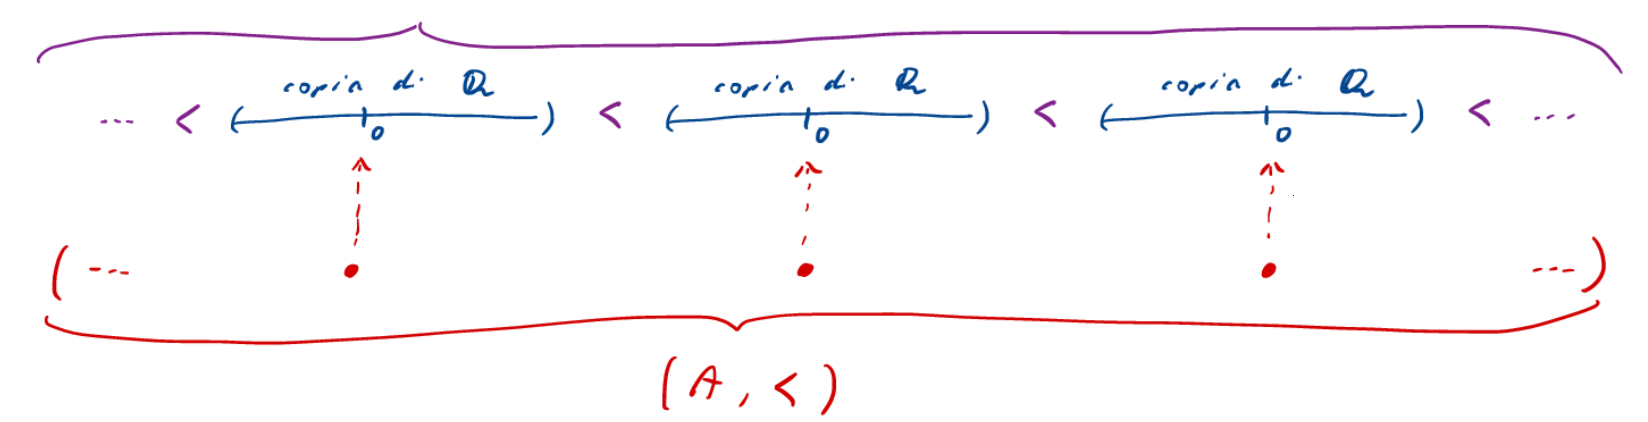 copia di ℚ copia di ℚ copia di ℚ
... < ( 0 ) < ( 0 ) < ( 0 ) < ...
( ... ... )
(A, <)